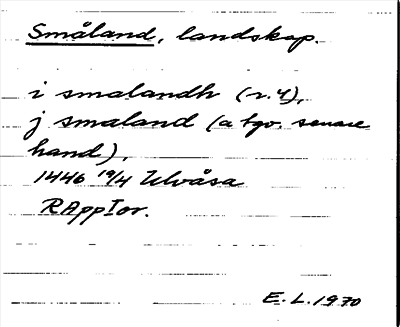 Småland, landskap.
i smalandh (r. 4),
j smaland (a tgv. senare
hand),
1446 19/4 Ulvåsa
RAppIor.
E.L. 1970